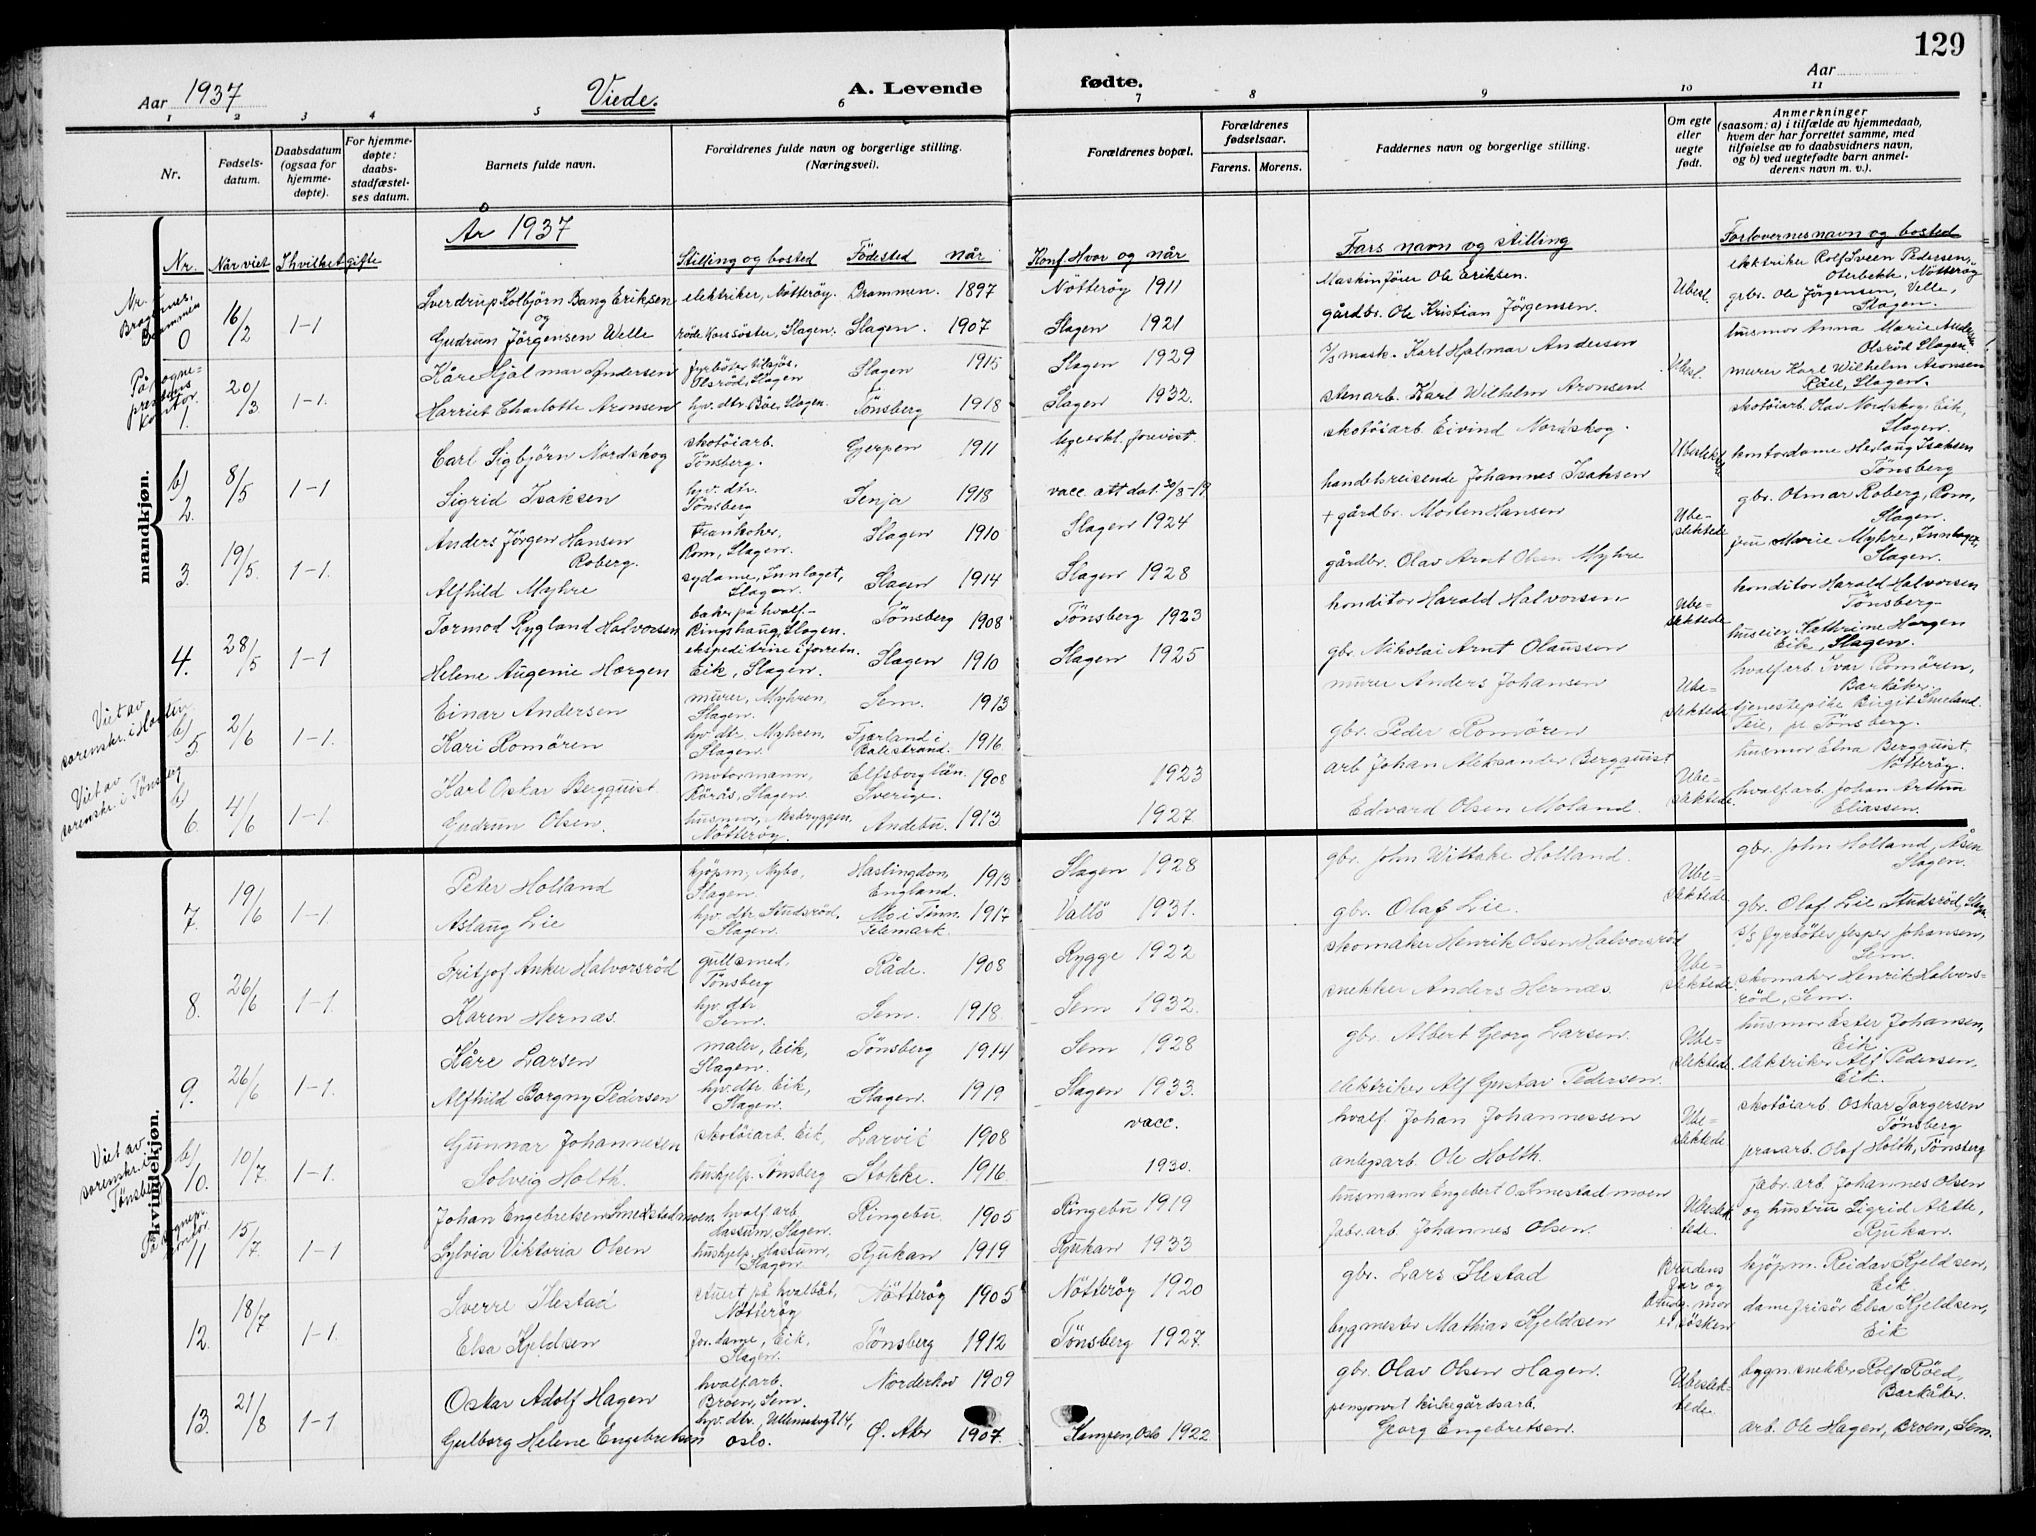 129
Aar 1937 Viede. A. Levende fødte. Aar
1 2 3 4 5 6 7 8 9 10 11
Nr. Fødsels-datum. Daabsdatum (ogsaa for hjemme-døpte). For hjemme-døpte: daabs-stadfæstel-ses datum. Barnets fulde navn. Forældrenes fulde navn og borgerlige stilling. (Næringsvei). Forældrenes bopæl. Forældrenes fødselsaar. Farens. Morens. Faddernes navn og borgerlige stilling. Om egte eller uegte født. Anmerkninger (saasom: a) i tilfælde av hjemmedaab, hvem der har forrettet samme, med tilføielse av to daabsvidners navn, og b) ved uegtefødte barn anmel-derens navn m. v.).
År 1937
Nr. Når viet I hvilket gifte Stilling og bosted Födested når Konf. Hvor og når Fars navn og stilling Forlovernes navn og bosted
mandkjøn.
Nr. Bragernes, Drammen
0 16/2 1-1 Sverdrup Kolbjörn Bang Eriksen elektriker, Nötteröy. Drammen. 1897 Nötteröy 1911 Maskinförer Ole Eriksen. Ubesl. elektriker Rolf Sveen Pedersen, Oterbekk, Nötteröy
og
Gudrun Jörgensen Welle röde korssöster, Slagen. Slagen. 1907 Slagen 1921 gårdbr. Ole Kristian Jörgensen. grbr. Ole Jörgensen, Velle, Slagen.
På sogne-prestens kontor.
1. 20/3 1-1. Kåre Hjalmar Andersen fyrböter tilsjös, Olsröd, Slagen Slagen 1915 Slagen 1929 s/s mask. Karl Hjalmar Andersen Ubesl. husmor Anna Marie Andersen Olsröd Slagen.
Harriet Charlotte Aronsen hjv. dtr. Råel, Slagen. Tönsberg 1918 Slagen 1932. stenarb. Karl Wilhelm Aronsen. murer Karl Wilhelm Aronsen Råel, Slagen.
b) 2. 8/5 1-1 Carl Sigbjörn Nordskog skotöiarb. Tönsberg. Gjerpen 1911 lægeerkl. forevist. skotöiarb. Eivind Nordskog. Ubeslektet skotöiarb. Olav Nordskog, Eik, Slagen.
Sigrid Isaksen hjv. dtr. Tönsberg Senja 1918 vacc. att. dat. 30/8-19 handelsreisende Johannes Isaksen kontordame Herlaug Isaksen Tönsberg
3. 19/5. 1-1. Anders Jörgen Hansen Roberg. Rom, Slagen. Slagen 1910 Slagen 1924 + gårdbr. Morten Hansen Ube-slektede gbr. Otmar Roberg, Rom, Slagen.
Alfhild Myhre sydame, Innlaget, Slagen. Slagen 1914 Slagen 1928 gårdbr. Olav Arnt Olsen Myhre fru Marie Myhre, Innlaget, Slagen.
4. 28/5 1-1 Tormod Rygland Halvorsen baker på hvalf. Ringshaug, Slagen. Tönsberg 1908 Tönsberg 1923 konditor Harald Halvorsen Ube-slektede konditor Harald Halvorsen Tönsberg
Helene Augenie Hærgen ekspeditrise i forretn. Eik, Slagen. Slagen 1910 Slagen 1925 gbr. Nikolai Arnt Olaussen huseier Kathrine Hærgen Eik, Slagen.
Viet av sorenskr. i Holte
b) 5. 2/6 1-1. Einar Andersen murer, Myhren, Slagen. Sem. 1913 murer Anders Johansen Ube-slektede hvalfarb. Ivar Romören, Barkåker
Kari Romören hjv. dtr. Myhren, Slagen. Fjærland i Balestrand. 1916 gbr. Peder Romören tjenestepike Birgit Smeland. Teie, pr Tönsberg.
Viet av sorenskr. i Tönsberg
b) 6. 4/6 1-1. Karl Oskar Bergquist motormann, Rörås, Slagen. Elfsborg län. Sverige. 1908 1923 arb. Johan Aleksander Bergquist Ube-slektede. husmor Elna Bergquist, Nötteröy.
Gudrun Olsen. husmor, Nesbryggen. Nötteröy. Andebu. 1913. 1927. Edvard Olsen Moland. hvalf.arb. Johan Arthur Eliassen.
kvindekjøn.
7. 19/6 1-1 Peter Holland kjöpm., Nybo, Slagen. Haslingdon, England. 1913 Slagen 1928 gbr. John Wittake Holland. Ube-slektede gbr. John Holland, Åsen Slagen.
Aslaug Lie hjv. dtr. Studsröd, Slagen. Mo i Tinn. Telemark. 1917 Vallö 1931. gbr. Olaf Lie. gbr. Olaf Lie, Studsröd, Slagen
8. 26/6 1-1. Fritjof Anker Halvorsröd gullsmed, Tönsberg Råde. 1908 Rygge 1922 skomaker Henrik Olsen Halvorsröd Ube-slektede. s/s fyrböter Jesper Johansen, Sem.
Karen Hernæs. hjv. dtr. Sem. Sem. 1918. Sem 1932. snekker Anders Hernæs skomaker Henrik Halvors-röd, Sem.
9. 26/6 1-1. Kåre Larsen maler, Eik, Slagen. Tönsberg 1914 Sem 1928 gbr. Albert Georg Larsen. Ube-slektede. husmor Ester Johansen, Eik.
Alfhild Borgny Pedersen hjv. dtr. Eik, Slagen. Slagen. 1919 Slagen 1933. elektriker Alf Gustav Pedersen. elektriker Alf Pedersen, Eik.
Viet av sorenskr. i Tönsberg
b) 10. 10/7. 1-1. Gunnar Johannesen skotöiarb. Eik, Larvik 1908 vacc. hvalf. Johan Johannessen Ube-slektede skotöiarb. Oskar Torgersen Tönsberg
Solveig Holth. hushjelp. Tönsberg Stokke. 1916. 1930. anlegsarb. Ole Holth. Olaf Holth, Tönsberg
På sognepr. kontor.
11 15/7. 1-1 Johan Engebretsen Smestadmoen hvalf arb. Hassum, Slagen. Ringebu. 1905 Ringebu 1919 husmann Engebret O Smestadmoen Ubeslek-tede. fabr. arb. Johannes Olsen
Sylvia Viktoria Olsen hushjelp. Hassum, Slagen. Rjukan 1919 Rjukan 1933 fabr. arb. Johannes Olsen. og hustru Sigrid Alette, Rjukan.
12. 18/7 1-1. Sverre Ilestad stuert på hvalbåt, Nötteröy Nötteröy 1905 Nötteröy 1920 gbr. Lars Ilestad Brudens far og brudg. mor er sösken kjöpm. Reidar Kjeldsen, Eik
Elsa Kjeldsen for. dame, Eik, Slagen. Tönsberg 1912 Tönsberg 1927. bygmester Mathias Kjeldsen damefrisör Elsa Kjeldsen, Eik
13. 21/8 1-1 Oskar Adolf Hagen hvalfarb. Broen, Sem. Norderhov 1909 gbr. Olav Olsen Hagen. Ubeslek-tede. bygn. snekker Rolf Röed, Barkåker.
Gulborg Helene Engebretsen hjv. dtr., Oslo. Ø. Aker 1907. Kampen, Oslo 1922 pensjonert kirkegårdsarb. Georg Engebretsen. arb. Ole Hagen, Broen, Sem.